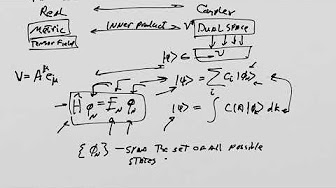 Real Complex
Metric INNER PRODUCT V* DUAL SPACE
Tensor Field V
V = A^μ e_μ |ψ⟩ = Σ_i C_i |ϕ_i⟩
Ĥ ϕ_N = E_N ϕ_N |ψ⟩ = ∫ C(k)|ϕ_k⟩ dk
{ϕ_N} — SPAN THE SET OF ALL POSSIBLE
STATES.